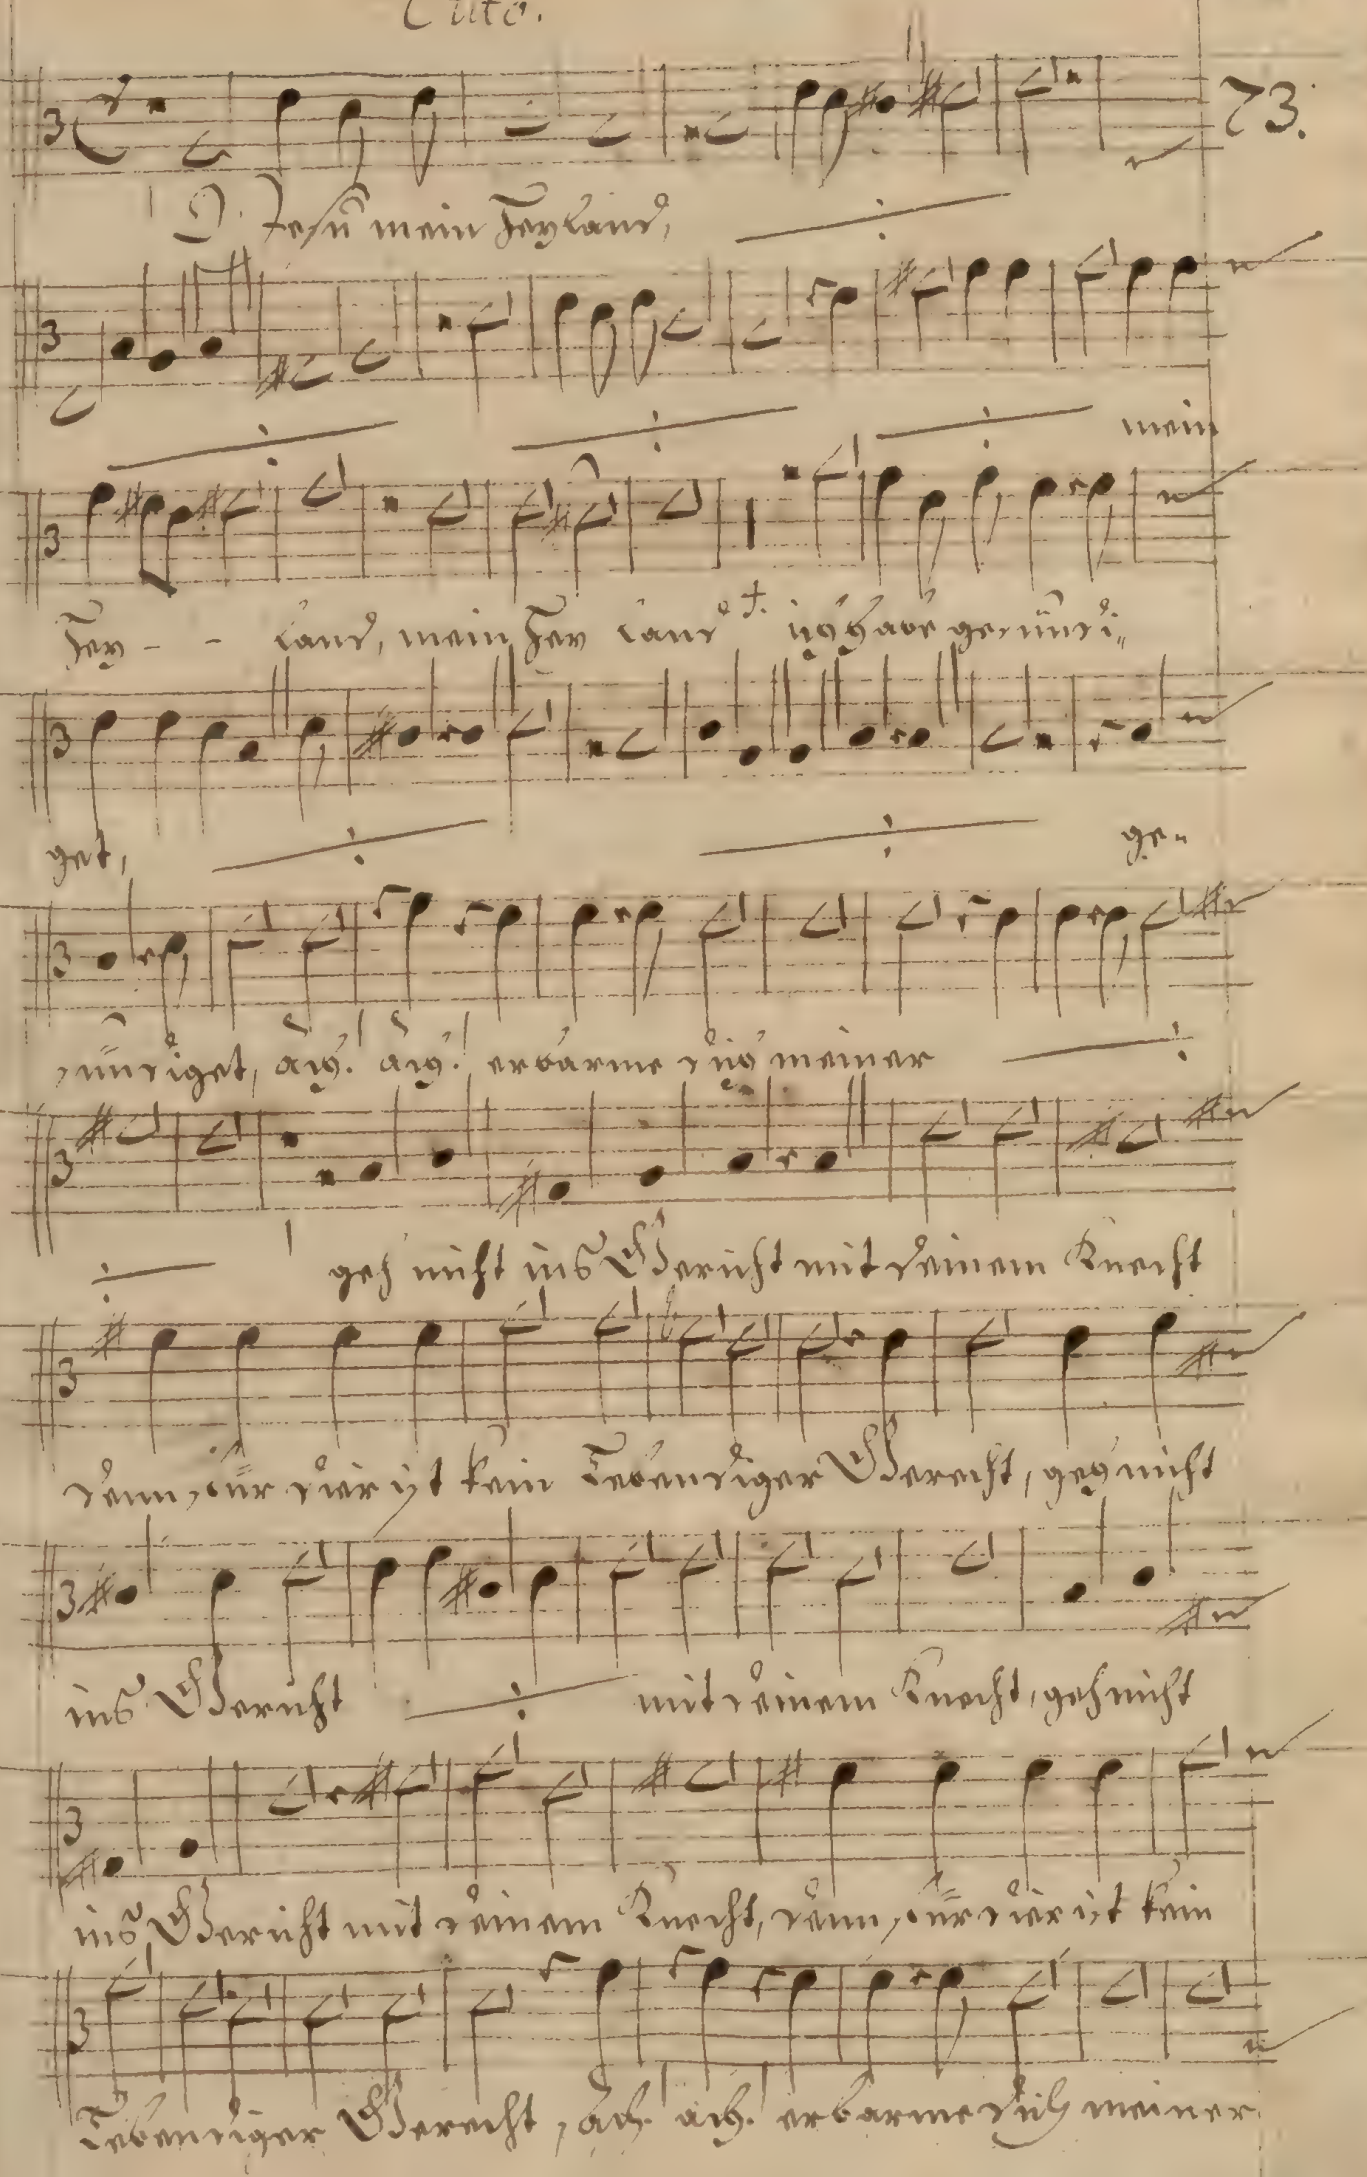 Tuto.
73.
O Jesu mein Heyland,
mein
Hey - - land, mein Hey land ich habe gesündi„
get, ge„
sündiget, ach! ach! erbarme dich meiner
geh nicht ins Gericht mit deinem Knecht
denn für dier ist kein Lebendiger Gerecht, geh nicht
ins Gericht mit deinem Knecht, geh nicht
ins Gericht mit deinem Knecht, denn für dier ist kein
Lebendiger Gerecht, ach! ach! erbarme dich meiner